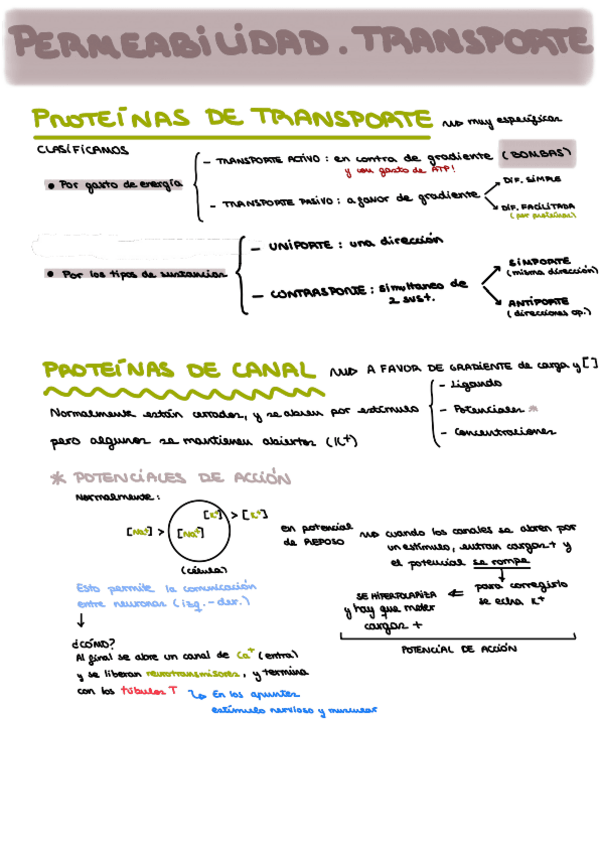 PERMEABILIDAD. TRANSPORTE
PROTEÍNAS DE TRANSPORTE muy específicas
CLASIFICAMOS
• Por gasto de energía
- TRANSPORTE ACTIVO: en contra de gradiente (BOMBAS)
y con gasto de ATP!
- TRANSPORTE PASIVO: a favor de gradiente
DIF. SIMPLE
DIF. FACILITADA
(por proteínas)
• Por los tipos de sustancias
- UNIPORTE: una dirección
- CONTRASPORTE: simultaneo de
2 sust.
SIMPORTE
(misma dirección)
ANTIPORTE
(direcciones op.)
PROTEÍNAS DE CANAL A FAVOR DE GRADIENTE de carga y [ ]
Normalmente están cerrados, y se abren por estímulo
- Ligando
- Potenciales *
- Concentraciones
pero algunos se mantienen abiertos (K+)
* POTENCIALES DE ACCIÓN
Normalmente:
[K+] > [K+]
[Na+] > [Na+]
(célula)
en potencial
de REPOSO
cuando los canales se abren por
un estímulo, entran cargas + y
el potencial se rompe
para corregirlo
se echa K+
SE HIPERPOLARIZA
y hay que meter
cargas +
POTENCIAL DE ACCIÓN
Esto permite la comunicación
entre neuronas (izq.-der.)
¿CÓMO?
Al final se abre un canal de Ca+ (entra)
y se liberan neurotransmisores, y termina
con los túbulos T
En los apuntes
estímulo nervioso y muscular